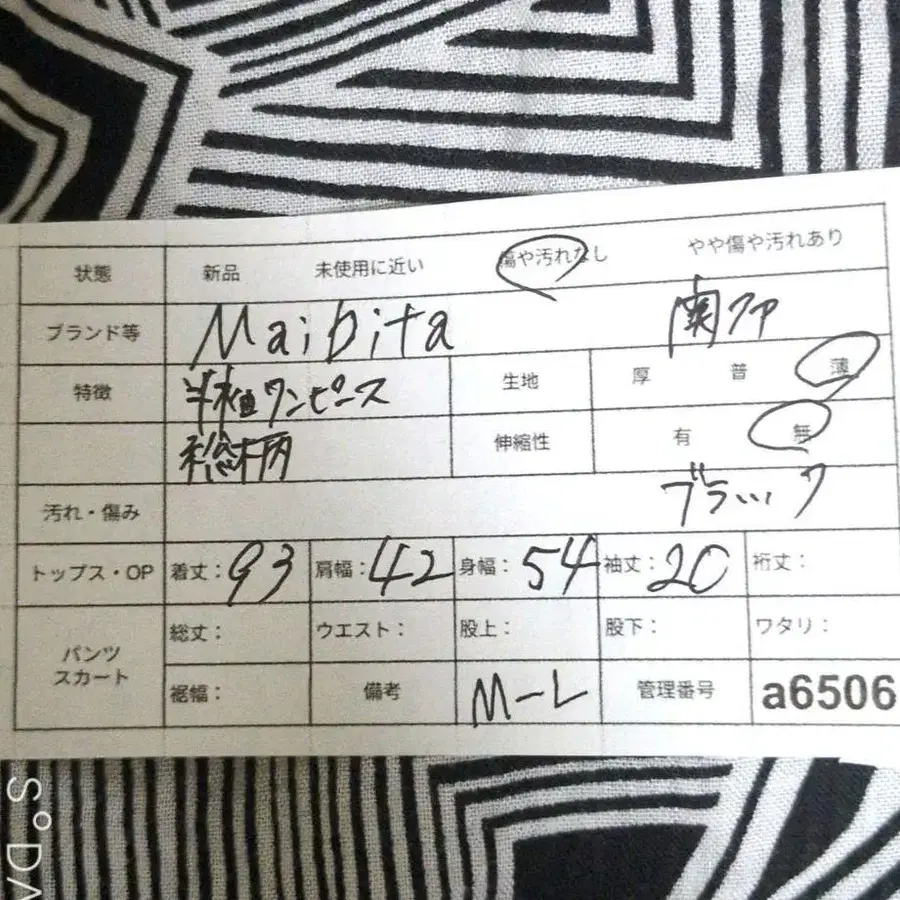 状態 新品 未使用に近い 傷や汚れなし やや傷や汚れあり
ブランド等 Maibita
特徴 半袖ワンピース 生地 厚 普 薄
総柄 伸縮性 有 無
汚れ・傷み ブラック
トップス・OP 着丈:93 肩幅:42 身幅:54 袖丈:20 裄丈:
パンツ スカート 総丈: ウエスト: 股上: 股下: ワタリ:
裾幅: 備考 M-L 管理番号 a6506